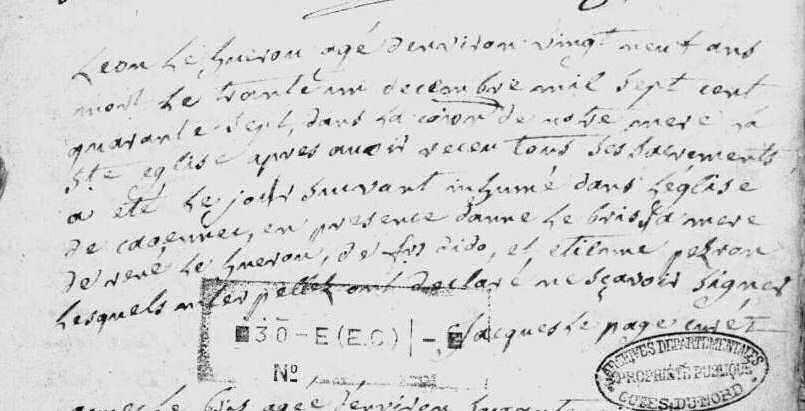 Leon le hueron agé denviron vingt neuf ans
mort le trante un decembre mil sept cent
quarante sept, dans la coïon de notre mere la
Ste eglise apres avoir receu tous ses sacrements
a été le jour suivant inhumé dans léglise
de caoennec, en presence danne le bris sa mere
de rené le hueron, de frs dido, et etienne pezron
lesquels interpellez ont declaré ne sçavoir signer
Jacques le page curé
30-E(E.C) -
No
ARCHIVES DEPARTEMENTALES
PROPRIÉTÉ PUBLIQUE
COTES-DU-NORD
le bris agée denviron